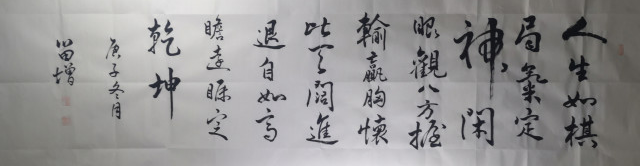 人生如棋
局氣定
神閑
眼觀八方握
輸贏胸懷
此天闊進
退自如高
瞻遠矚定
乾坤
庚子冬月
留增